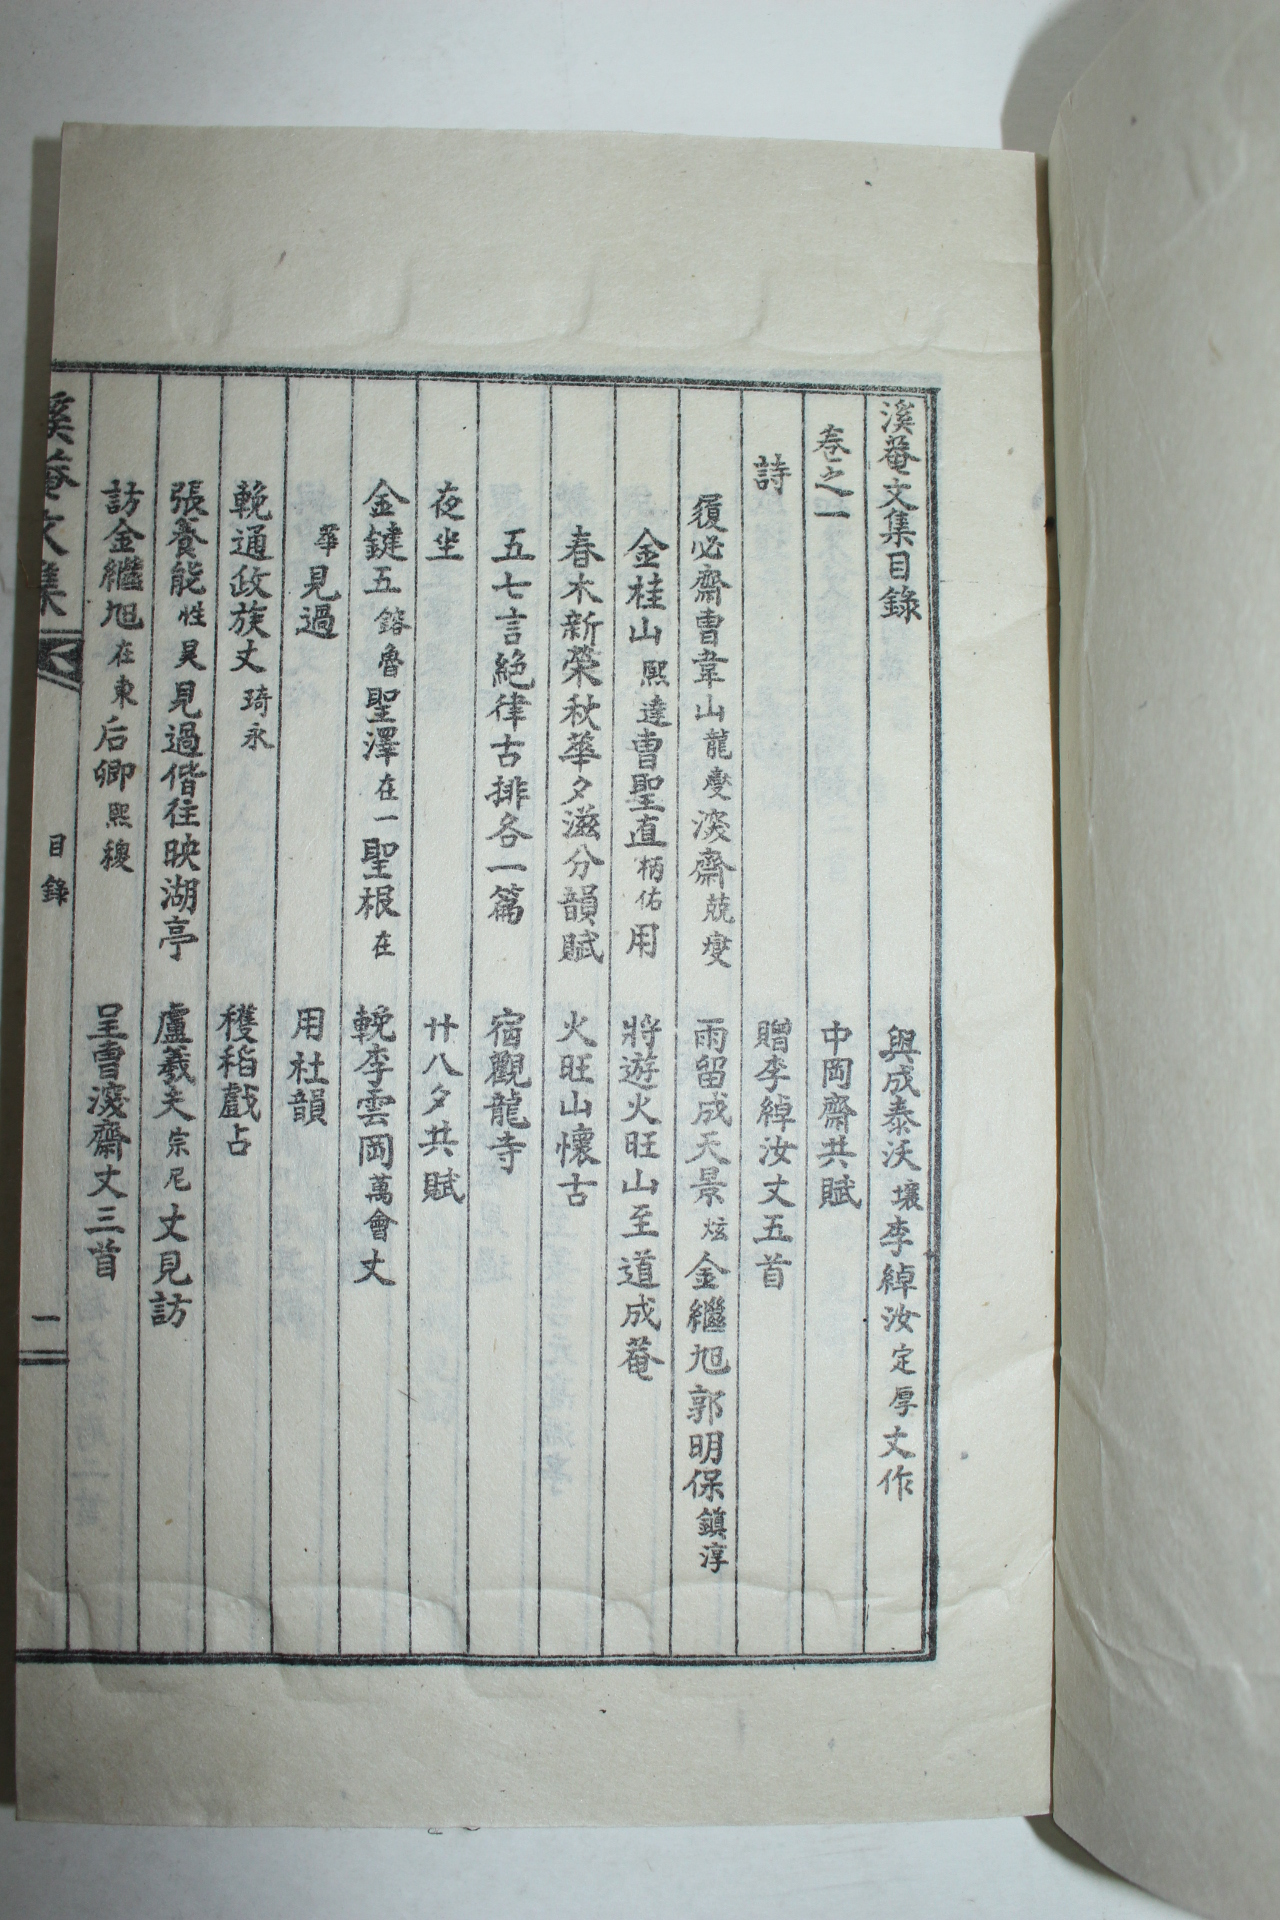 溪菴文集目錄
卷之一
詩
履必齋曺韋山龍燮淡齋兢燮
金桂山熙達曺聖直柄佑用
春木新榮秋華夕滋分韻賦
五七言絕律古排各一篇
夜坐
金鍵五鎔魯聖澤在一聖根在
華見過
輓通政族丈琦永
張養能性昊見過偕往映湖亭
訪金繼旭在東后卿熙稷
與成泰沃壤李綽汝定厚丈作
中岡齋共賦
贈李綽汝丈五首
雨留成天景炫金繼旭郭明保鎮淳
將遊火旺山至道成菴
火旺山懷古
宿觀龍寺
廿八夕共賦
輓李雲岡萬會丈
用杜韻
穫稻戲占
盧羲夫宗尼丈見訪
呈曺淺齋丈三首
溪菴文集
目錄
一